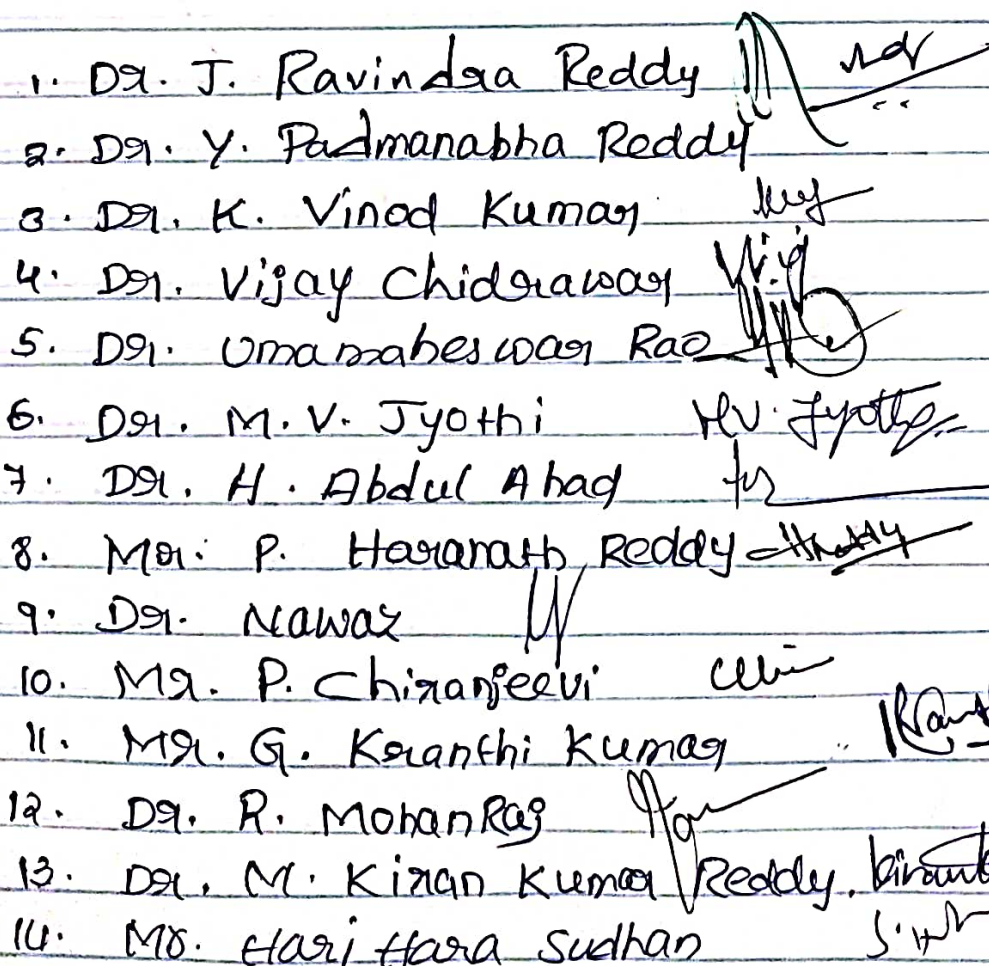 1. Dr. J. Ravindra Reddy
2. Dr. Y. Padmanabha Reddy
3. Dr. K. Vinod Kumar
4. Dr. Vijay Chidrawar
5. Dr. Umamaheswar Rao
6. Dr. M. V. Jyothi M.V. Jyothi
7. Dr. H. Abdul Ahad
8. Mr. P. Haranath Reddy HReddy
9. Dr. Nawaz
10. Mr. P. Chiranjeevi
11. Mr. G. Kranthi Kumar
12. Dr. R. MohanRaj
13. Dr. M. Kiran Kumar Reddy.
14. Mr. Hari Hara Sudhan